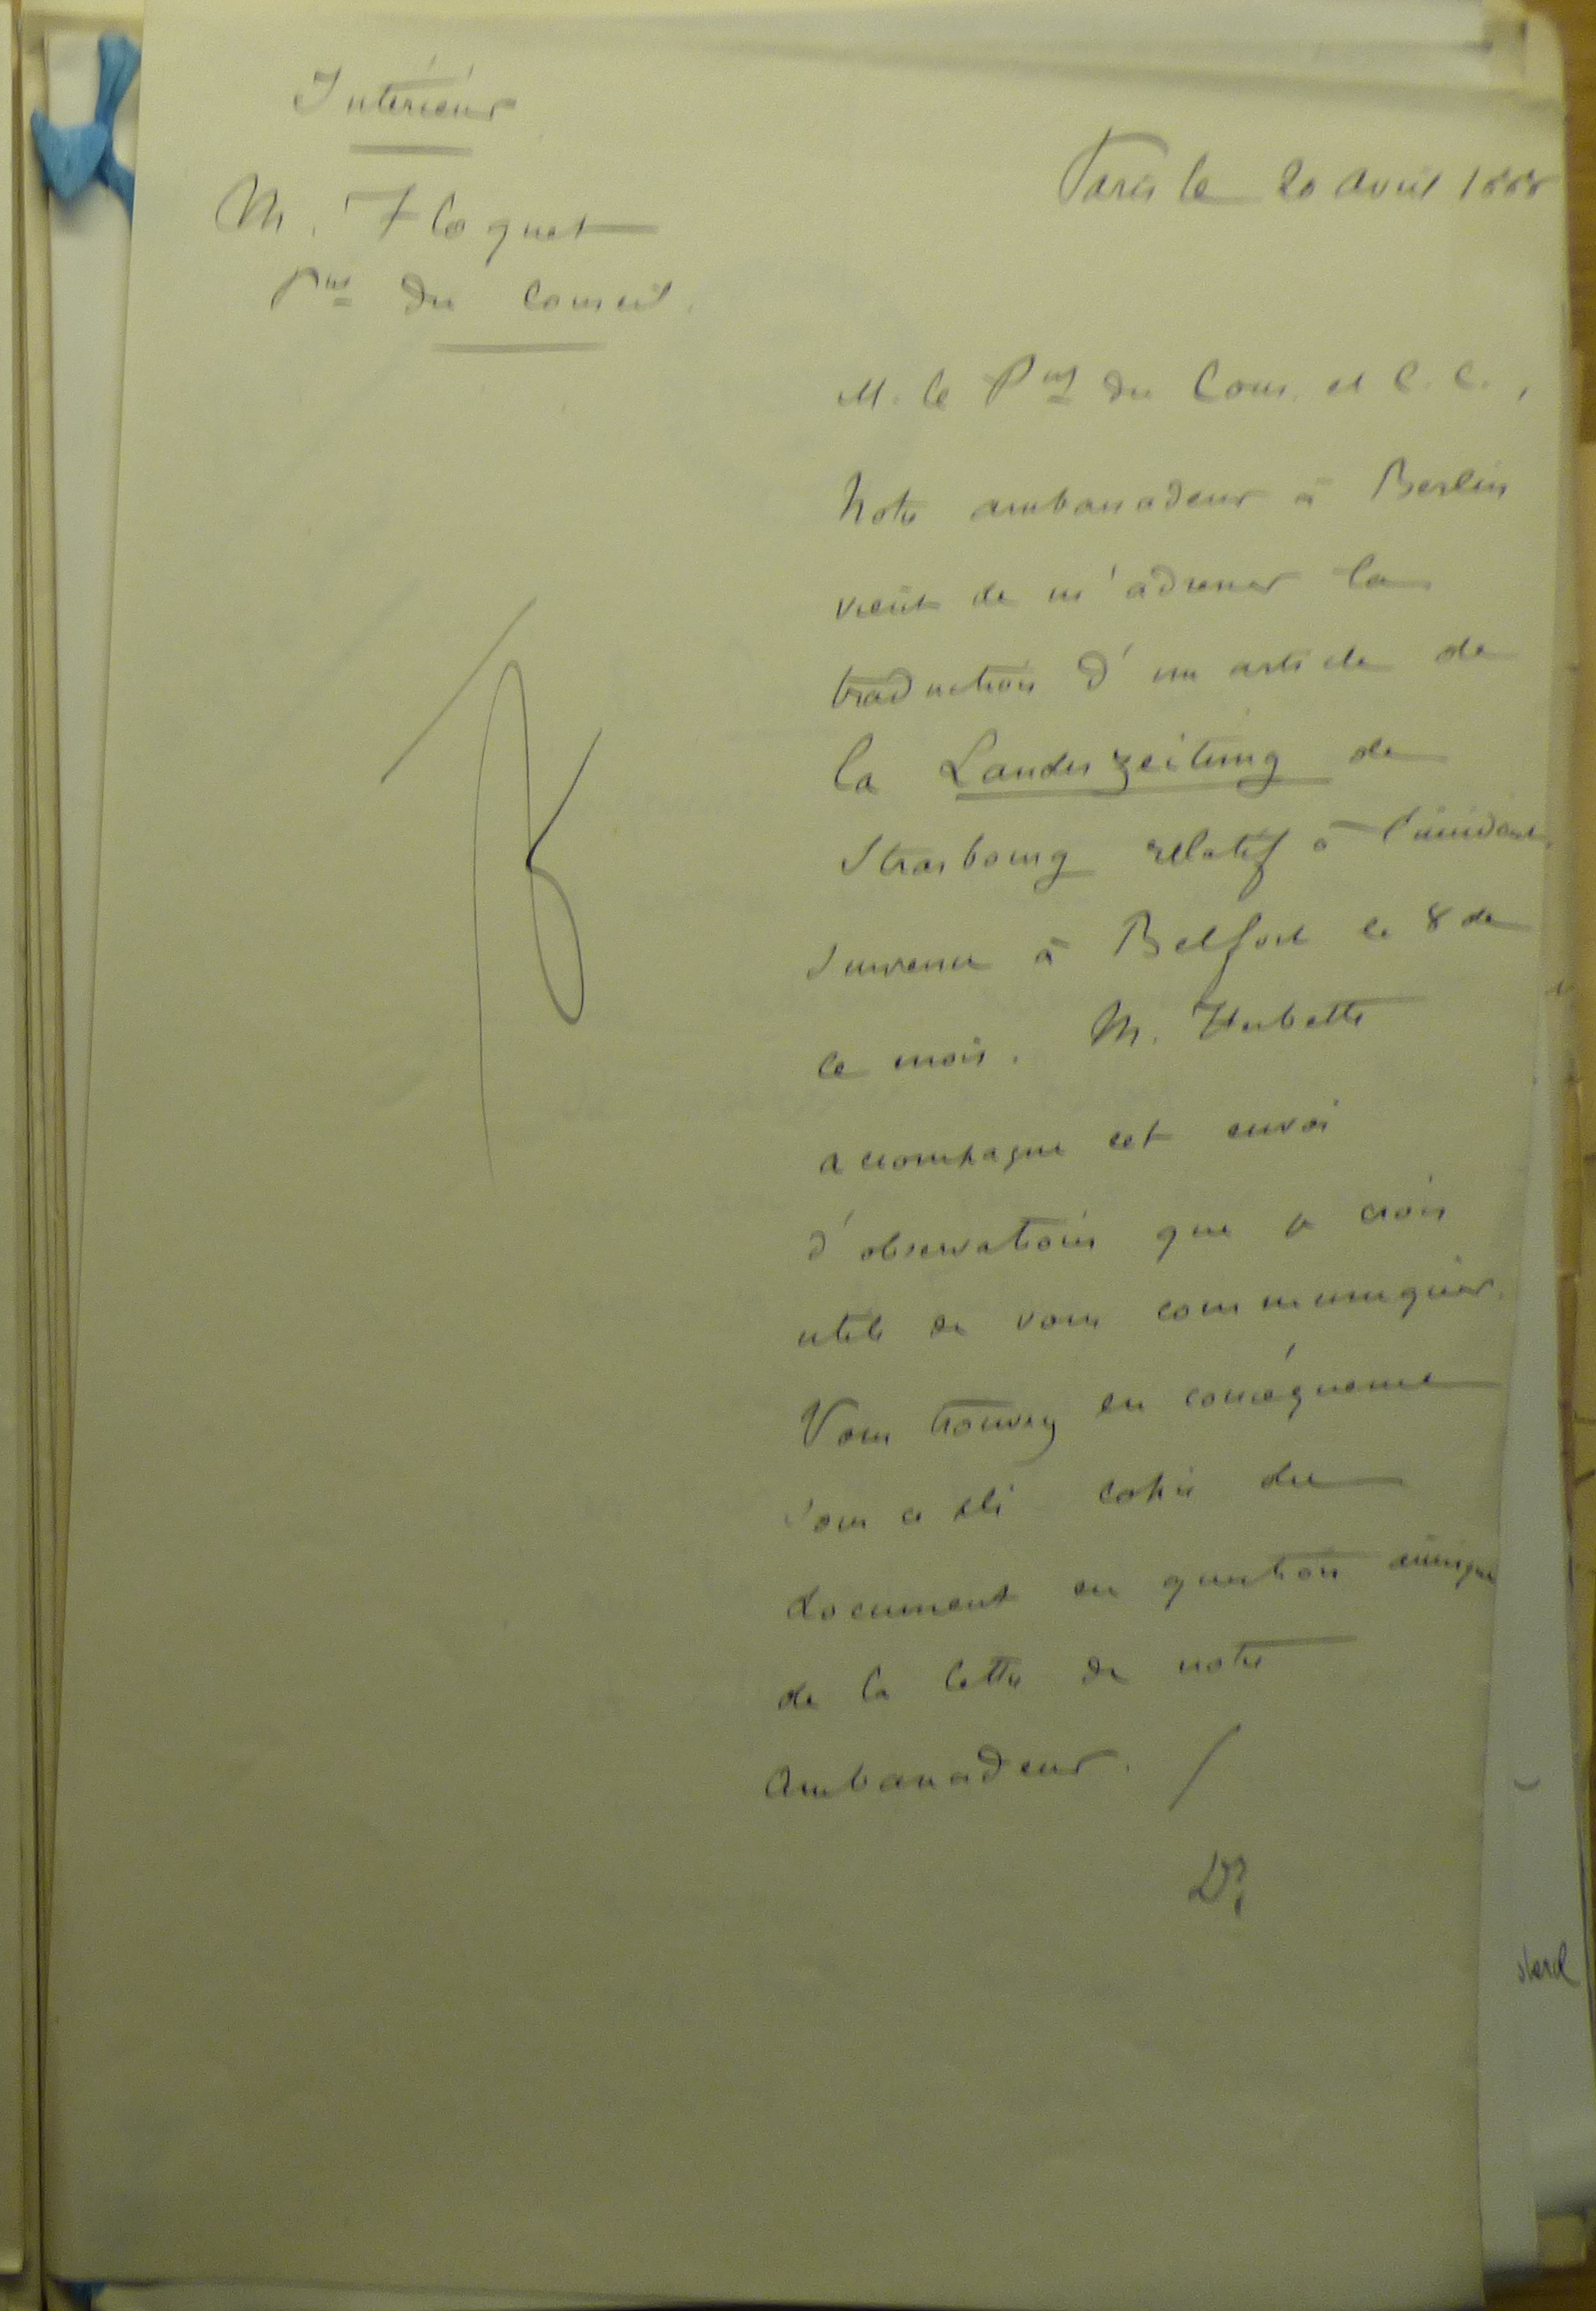 Intérieur
M. Floquet
Pnt du Conseil.
Paris le 20 avril 1888
M. le Pnt du Cons. et C. C.,
Notre ambassadeur à Berlin
vient de m'adresser la
traduction d'un article de
la Landeszeitung de
Strasbourg relatif à l'incident
survenu à Belfort le 8 de
ce mois. M. Herbette
accompagne cet envoi
d'observations que je crois
utile de vous communiquer.
Vous trouverez en conséquence
sous ce pli copie du
document en question ainsi que
de la lettre de notre
Ambassadeur. /